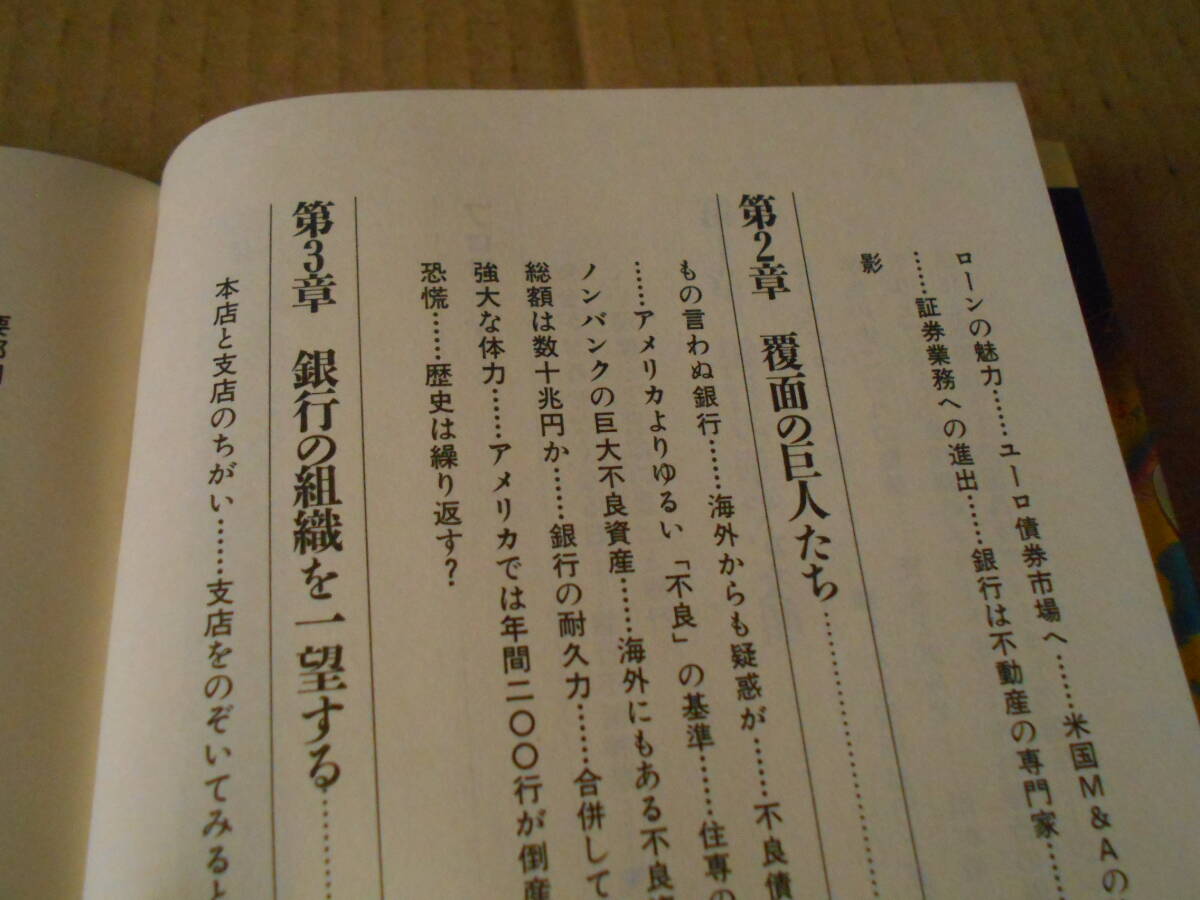 ローンの魅力……ユーロ債券市場へ……米国M&Aの
……証券業務への進出……銀行は不動産の専門家……
影
第2章　覆面の巨人たち
もの言わぬ銀行……海外からも疑惑が……不良債
……アメリカよりゆるい「不良」の基準……住専の
ノンバンクの巨大不良資産……海外にもある不良
総額は数十兆円か……銀行の耐久力……合併して
強大な体力……アメリカでは年間二〇〇行が倒産
恐慌……歴史は繰り返す？
第3章　銀行の組織を一望する
本店と支店のちがい……支店をのぞいてみると